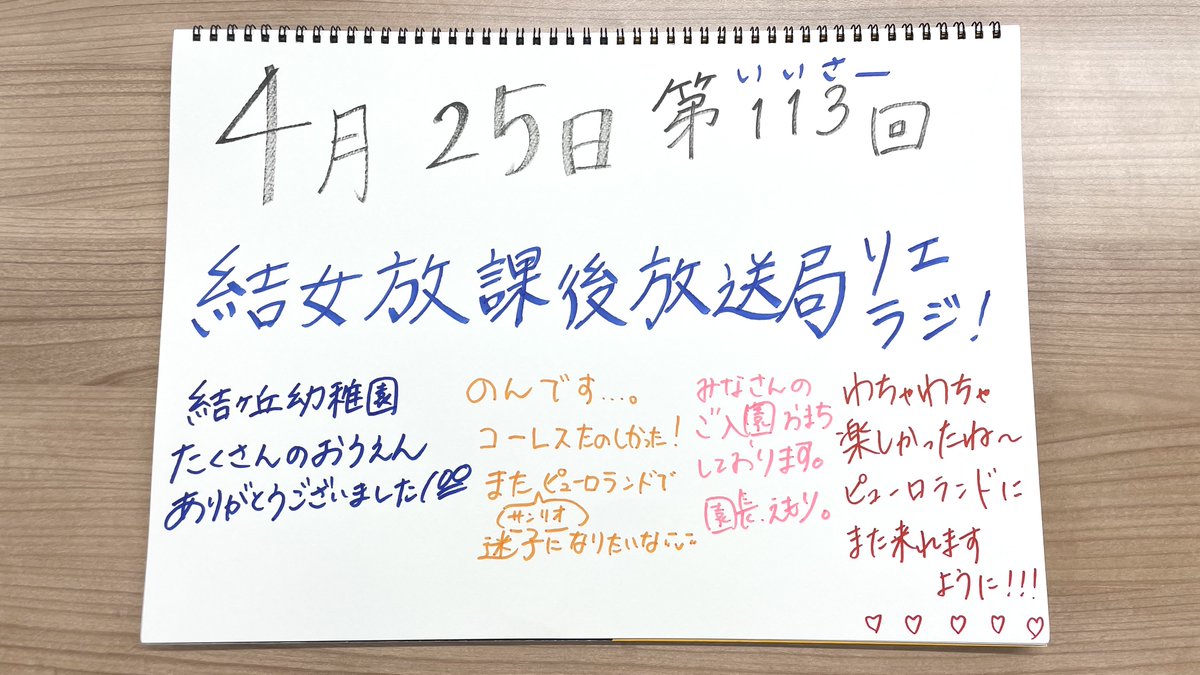 4月25日 第113回
いいさー
結女放課後放送局リエラジ!
結ヶ丘幼稚園
たくさんのおうえん
ありがとうございました
のんです…。
コーレスたのしかった!
またピューロランドで
サンリオ
迷子になりたいな
みなさんの
ご入園おまち
しております。
園長.えもり。
わちゃわちゃ
楽しかったね〜
ピューロランドに
また来れます
ように!!!
♡ ♡ ♡ ♡ ♡